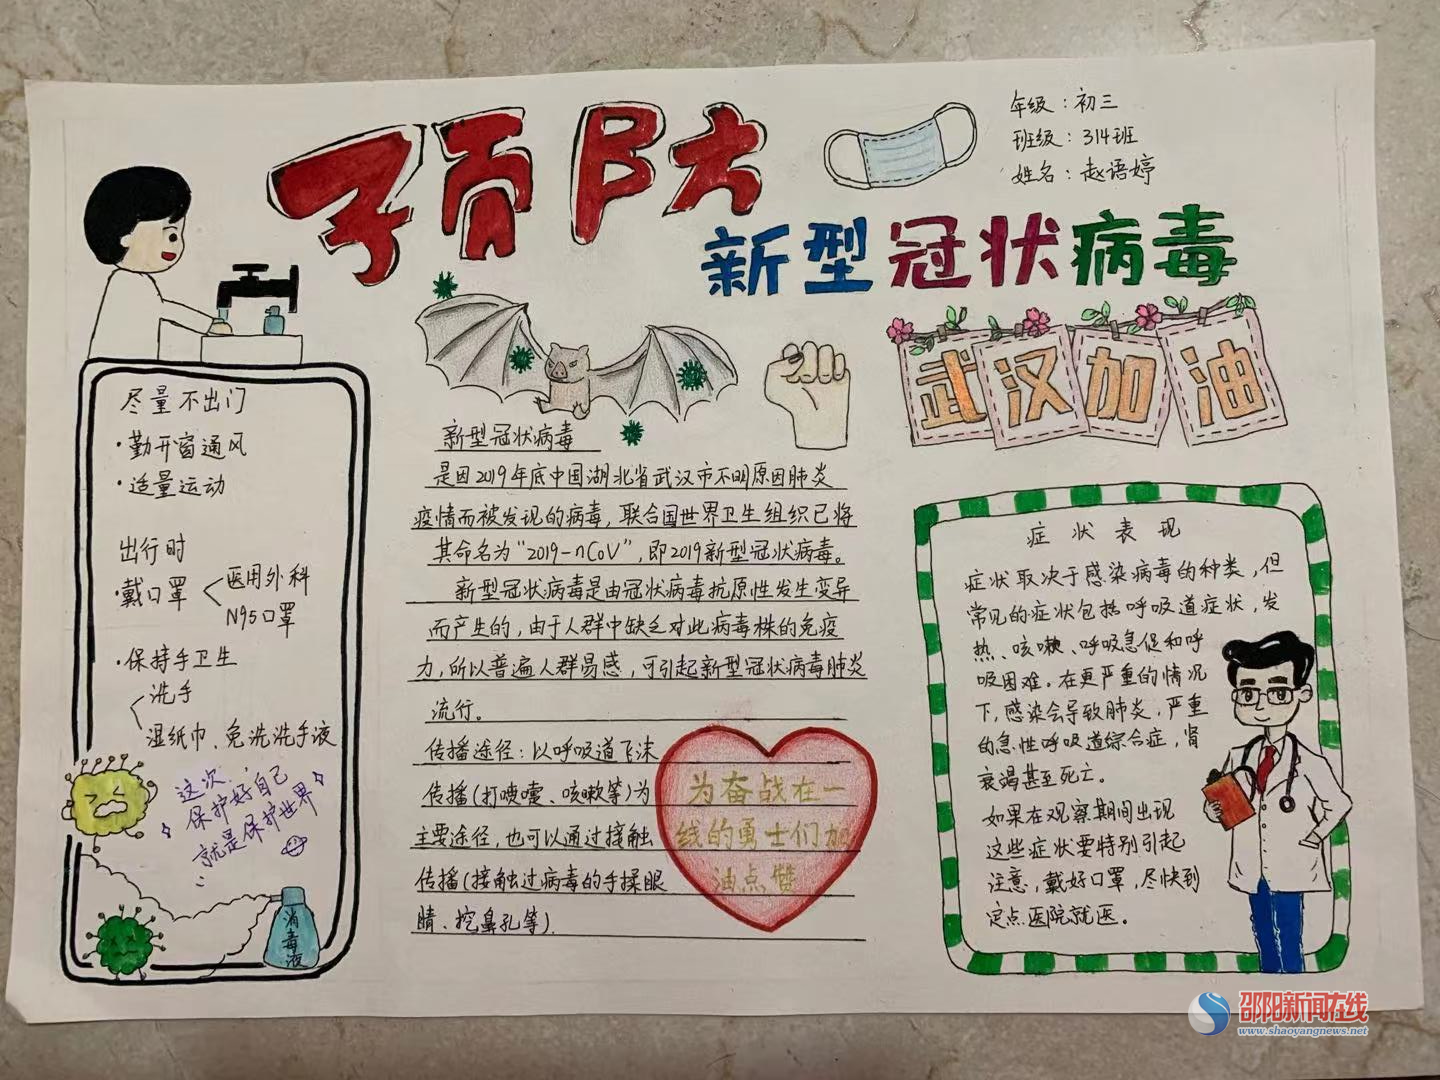 预防
年级：初三
班级：314班
姓名：赵语婷
新型冠状病毒
武汉加油
尽量不出门
·勤开窗通风
·适量运动
出行时
·戴口罩
医用外科
N95口罩
·保持手卫生
洗手
湿纸巾、免洗洗手液
这次，
保护好自己
就是保护世界
消毒液
新型冠状病毒
是因2019年底中国湖北省武汉市不明原因肺炎
疫情而被发现的病毒，联合国世界卫生组织已将
其命名为“2019-nCoV”，即2019新型冠状病毒。
新型冠状病毒是由冠状病毒抗原性发生变异
而产生的，由于人群中缺乏对此病毒株的免疫
力，所以普遍人群易感，可引起新型冠状病毒肺炎
流行。
传播途径：以呼吸道飞沫
传播（打喷嚏、咳嗽等）为
主要途径，也可以通过接触
传播（接触过病毒的手揉眼
睛、挖鼻孔等）.
为奋战在一
线的勇士们加
油点赞
症状表现
症状取决于感染病毒的种类，但
常见的症状包括呼吸道症状，发
热、咳嗽、呼吸急促和呼
吸困难。在更严重的情况
下，感染会导致肺炎，严重
的急性呼吸道综合症，肾
衰竭甚至死亡。
如果在观察期间出现
这些症状要特别引起
注意，戴好口罩，尽快到
定点医院就医。
邵阳新闻在线
www.shaoyangnews.net